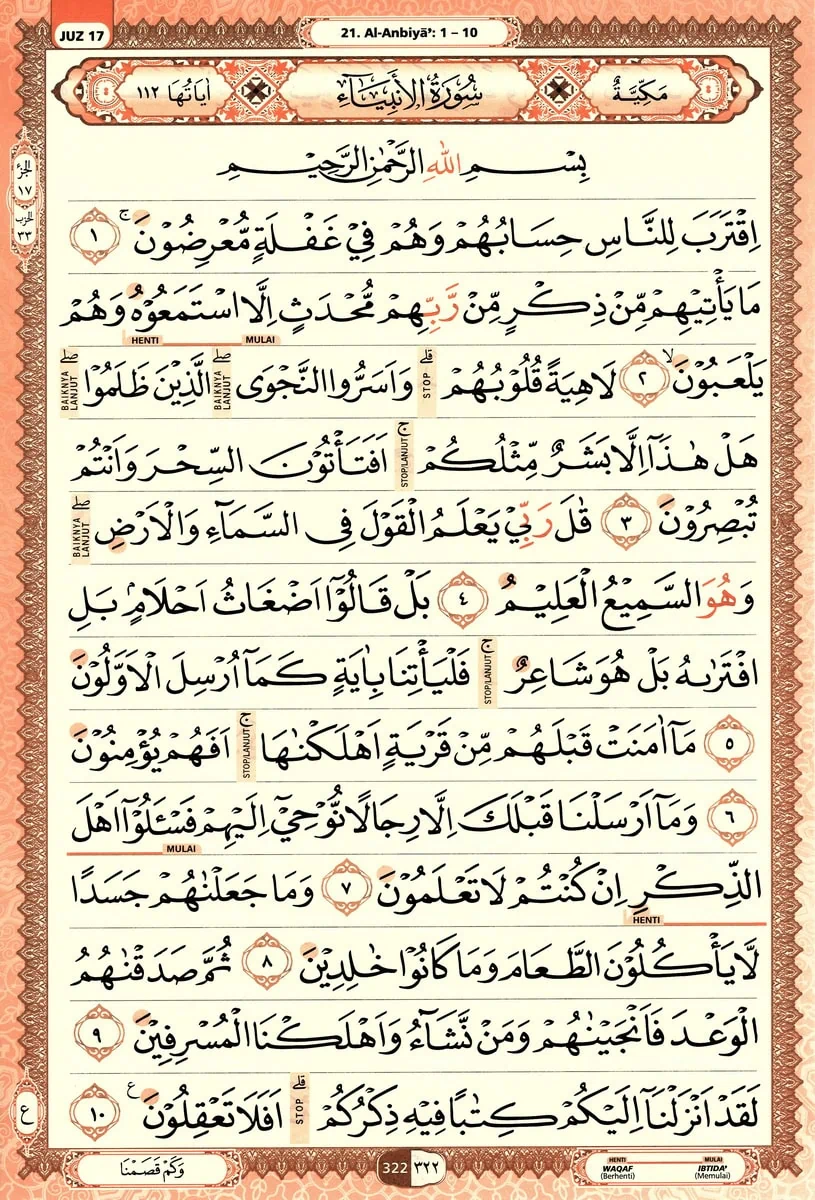 JUZ 17
21. Al-Anbiyāʾ: 1 – 10
مَكِّيَّةٌ
سُوْرَةُ الْاَنْبِيَاۤءِ
اٰيَاتُهَا ١١٢
الجزء
١٧
الحزب
٣٣
بِسْمِ اللّٰهِ الرَّحْمٰنِ الرَّحِيْمِ
اِقْتَرَبَ لِلنَّاسِ حِسَابُهُمْ وَهُمْ فِيْ غَفْلَةٍ مُّعْرِضُوْنَ ۚ ١
مَا يَأْتِيْهِمْ مِّنْ ذِكْرٍ مِّنْ رَّبِّهِمْ مُّحْدَثٍ اِلَّا اسْتَمَعُوْهُ وَهُمْ
MULAI HENTI
يَلْعَبُوْنَ ۙ ٢ لَاهِيَةً قُلُوْبُهُمْ ۗ STOP وَاَسَرُّوا النَّجْوَى ۖ BAIKNYA LANJUT الَّذِيْنَ ظَلَمُوْا ۖ BAIKNYA LANJUT
هَلْ هٰذَآ اِلَّا بَشَرٌ مِّثْلُكُمْ ۚ STOP/LANJUT اَفَتَأْتُوْنَ السِّحْرَ وَاَنْتُمْ
تُبْصِرُوْنَ ٣ قٰلَ رَبِّيْ يَعْلَمُ الْقَوْلَ فِى السَّمَاۤءِ وَالْاَرْضِ ۖ BAIKNYA LANJUT
وَهُوَ السَّمِيْعُ الْعَلِيْمُ ٤ بَلْ قَالُوْٓا اَضْغَاثُ اَحْلَامٍۢ بَلِ
افْتَرٰىهُ بَلْ هُوَ شَاعِرٌ ۚ STOP/LANJUT فَلْيَأْتِنَا بِاٰيَةٍ كَمَآ اُرْسِلَ الْاَوَّلُوْنَ
٥ مَآ اٰمَنَتْ قَبْلَهُمْ مِّنْ قَرْيَةٍ اَهْلَكْنٰهَا ۚ STOP/LANJUT اَفَهُمْ يُؤْمِنُوْنَ
٦ وَمَآ اَرْسَلْنَا قَبْلَكَ اِلَّا رِجَالًا نُّوْحِيْٓ اِلَيْهِمْ فَسْـَٔلُوْٓا اَهْلَ
MULAI
الذِّكْرِ اِنْ كُنْتُمْ لَا تَعْلَمُوْنَ ٧ وَمَا جَعَلْنٰهُمْ جَسَدًا
HENTI
لَّا يَأْكُلُوْنَ الطَّعَامَ وَمَا كَانُوْا خٰلِدِيْنَ ٨ ثُمَّ صَدَقْنٰهُمُ
الْوَعْدَ فَاَنْجَيْنٰهُمْ وَمَنْ نَّشَاۤءُ وَاَهْلَكْنَا الْمُسْرِفِيْنَ ٩
لَقَدْ اَنْزَلْنَآ اِلَيْكُمْ كِتٰبًا فِيْهِ ذِكْرُكُمْ ۗ STOP اَفَلَا تَعْقِلُوْنَ ࣖ ١٠
ع
وَكَمْ قَصَمْنَا
322 ٣٢٢
HENTI WAQAF (Berhenti)
MULAI IBTIDA' (Memulai)